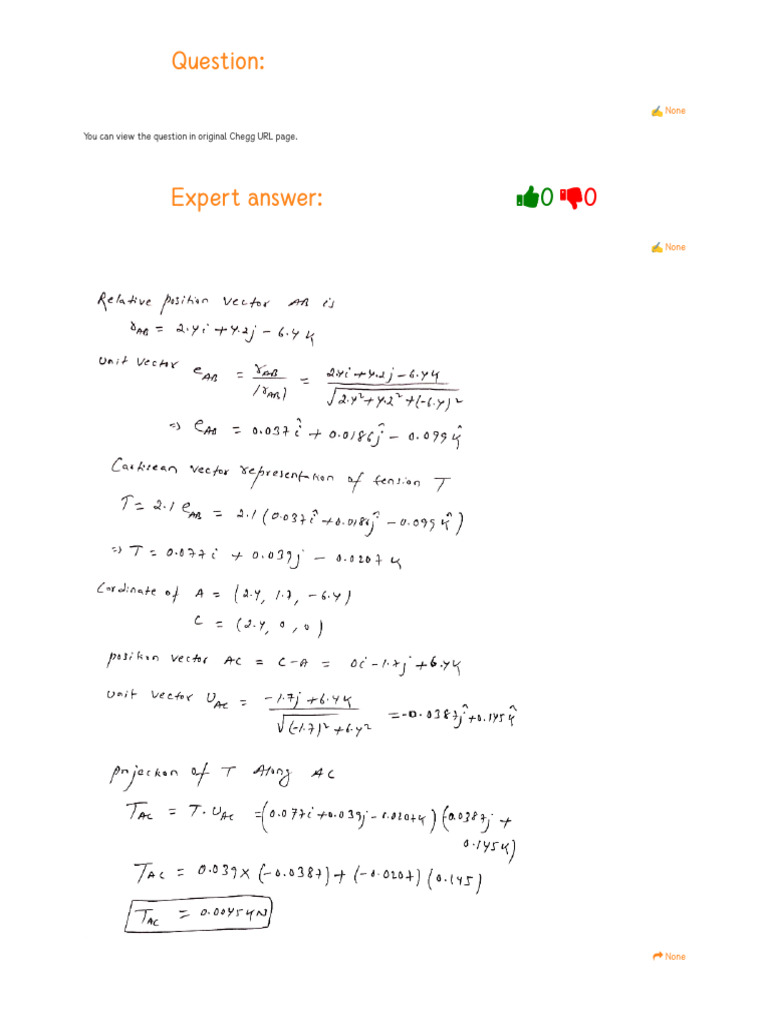 Question:
None
You can view the question in original Chegg URL page.
Expert answer:
0 0
None
Relative position vector AB is
r_AB = 2.4i + 4.2j - 6.4k
unit vector e_AB = r_AB / |r_AB| = (2.4i + 4.2j - 6.4k) / √(2.4² + 4.2² + (-6.4)²
=> e_AB = 0.037î + 0.0186ĵ - 0.099k̂
Cartisean vector representation of tension T
T = 2.1 e_AB = 2.1 (0.037î + 0.0186ĵ - 0.099k̂)
=> T = 0.077i + 0.039j - 0.0207k
Cordinate of A = (2.4, 1.7, -6.4)
C = (2.4, 0, 0)
position vector AC = C-A = 0i - 1.7j + 6.4k
unit vector U_AC = (-1.7j + 6.4k) / √((-1.7)² + 6.4² = -0.0387ĵ + 0.145k̂
projection of T Along AC
T_AC = T. U_AC = (0.077i + 0.039j - 0.0207k) (0.0387j +
0.145k)
T_AC = 0.039 x (-0.0387) + (-0.0207) (0.145)
T_AC = 0.0045 kN
None